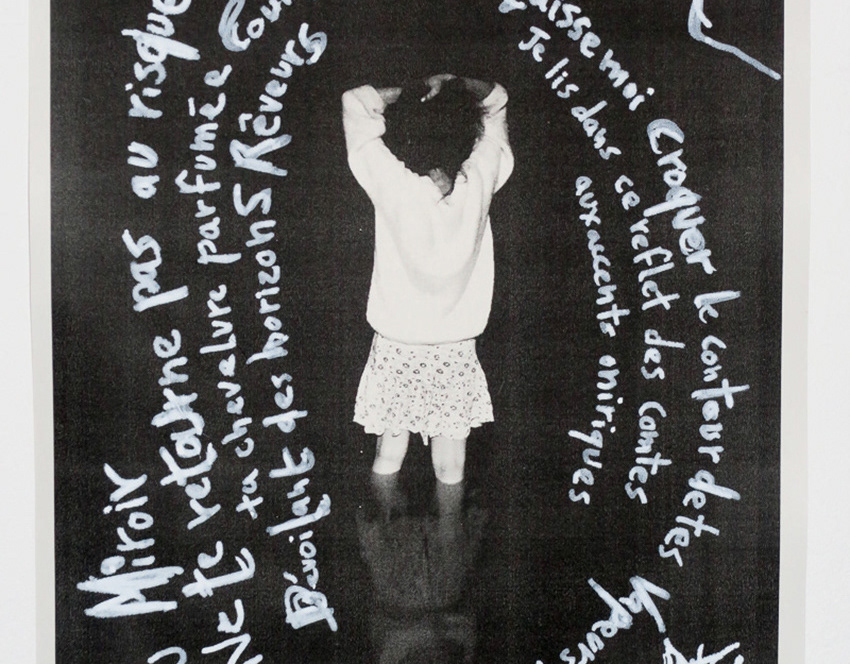 Miroir
Ne te retourne pas au risque
ta chevelure parfumée
Dévoilant des horizons Rêveurs
laisse moi Croquer le contour de tes
Je lis dans ce reflet des Contes
aux accents oniriques